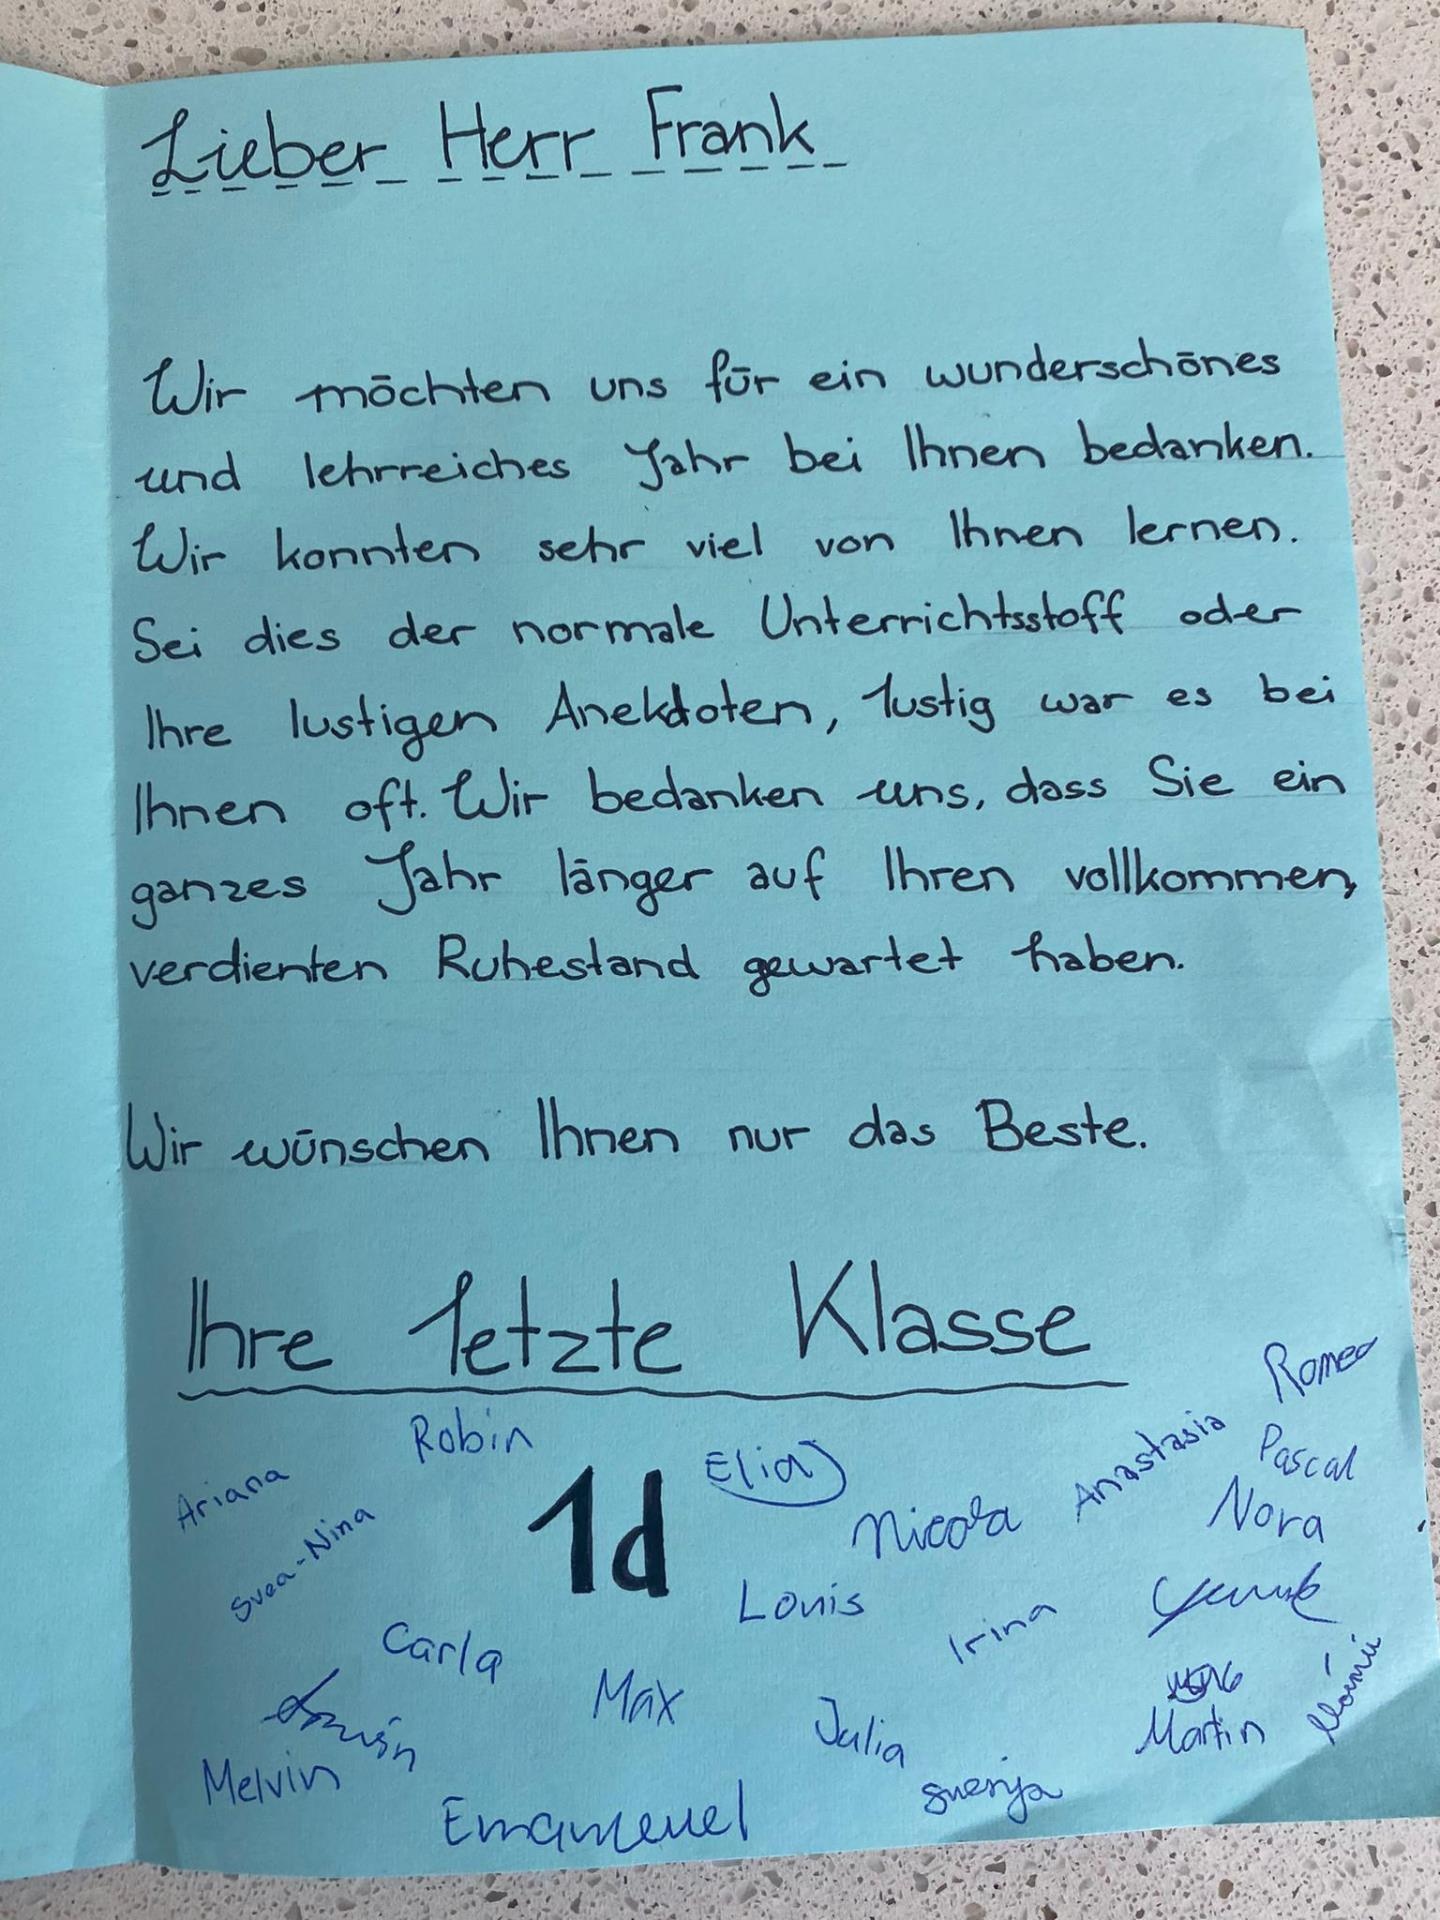 Lieber Herr Frank
Wir möchten uns für ein wunderschönes
und lehrreiches Jahr bei Ihnen bedanken.
Wir konnten sehr viel von Ihnen lernen.
Sei dies der normale Unterrichtsstoff oder
Ihre lustigen Anekdoten, lustig war es bei
Ihnen oft. Wir bedanken uns, dass Sie ein
ganzes Jahr länger auf Ihren vollkommen,
verdienten Ruhestand gewartet haben.
Wir wünschen Ihnen nur das Beste.
Ihre letzte Klasse
Romeo
Robin
Anastasia
Pascal
Ariana
Elia
Nicola
Nora
Svea-Nina
1d
Louis
Irina
Carla
Max
Julia
Martin
Melvin
Svenja
Emanuel